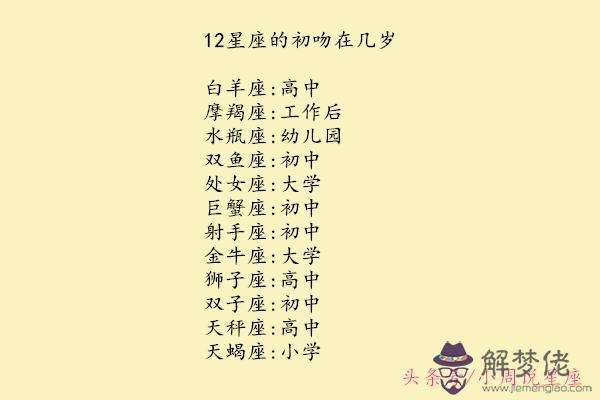 12星座的初吻在几岁
白羊座:高中
摩羯座:工作后
水瓶座:幼儿园
双鱼座:初中
处女座:大学
巨蟹座:初中
射手座:初中
金牛座:大学
狮子座:高中
双子座:初中
天秤座:高中
天蝎座:小学
解梦佬
www.jiemenglao.com
头条号/小周说星座